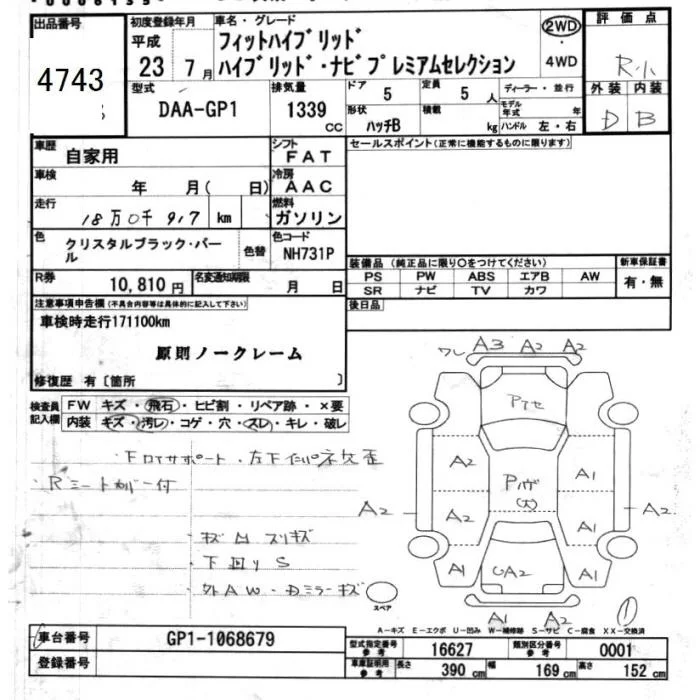 出品番号
4743
初度登録年月
平成
23 7月
車名・グレード
フィットハイブリッド
ハイブリッド・ナビプレミアムセレクション
2WD
・
4WD
評価点
R小
外装 内装
D B
型式
DAA-GP1
排気量
1339
CC
ドア
5
定員
5 人
ディーラー・並行
形状
ハッチB
積載
kg
モデル年式 年
ハンドル 左・右
車歴
自家用
シフト
FAT
セールスポイント(正常に機能するものに限ります)
車検
年 月( 日)
冷房
AAC
走行
18万0千917 km
燃料
ガソリン
色
クリスタルブラック・パール
色替
色コード
NH731P
装備品(純正品に限り○をつけてください)
PS PW ABS エアB AW
SR ナビ TV カワ
新車保証書
有・無
R券
10,810円
名変通知期限
月 日
後日品
注意事項申告欄(不具合内容等は具体的に記入して下さい)
車検時走行171100km
原則ノークレーム
修復歴 有〔箇所 〕
検査員記入欄
FW キズ・飛石・ヒビ割・リペア跡・×要
内装 キズ・汚レ・コゲ・穴・スレ・キレ・破レ
Rシートカバー付
キズ凹スリキズ
下回りS
外AW・Dミラーキズ
ワレ A3 A2 A2
A2 A1
A2 A2 A1 A2
A1 A2 A1
A1 A2
スペア
1
A-キズ E-エクボ U-凹み W-補修跡 S-サビ C-腐食 XX-交換済
車台番号
GP1-1068679
登録番号
型式指定番号 参考
16627
類別区分番号 参考
0001
車庫証明用 参考
長さ 390 cm 幅 169 cm 高さ 152 cm